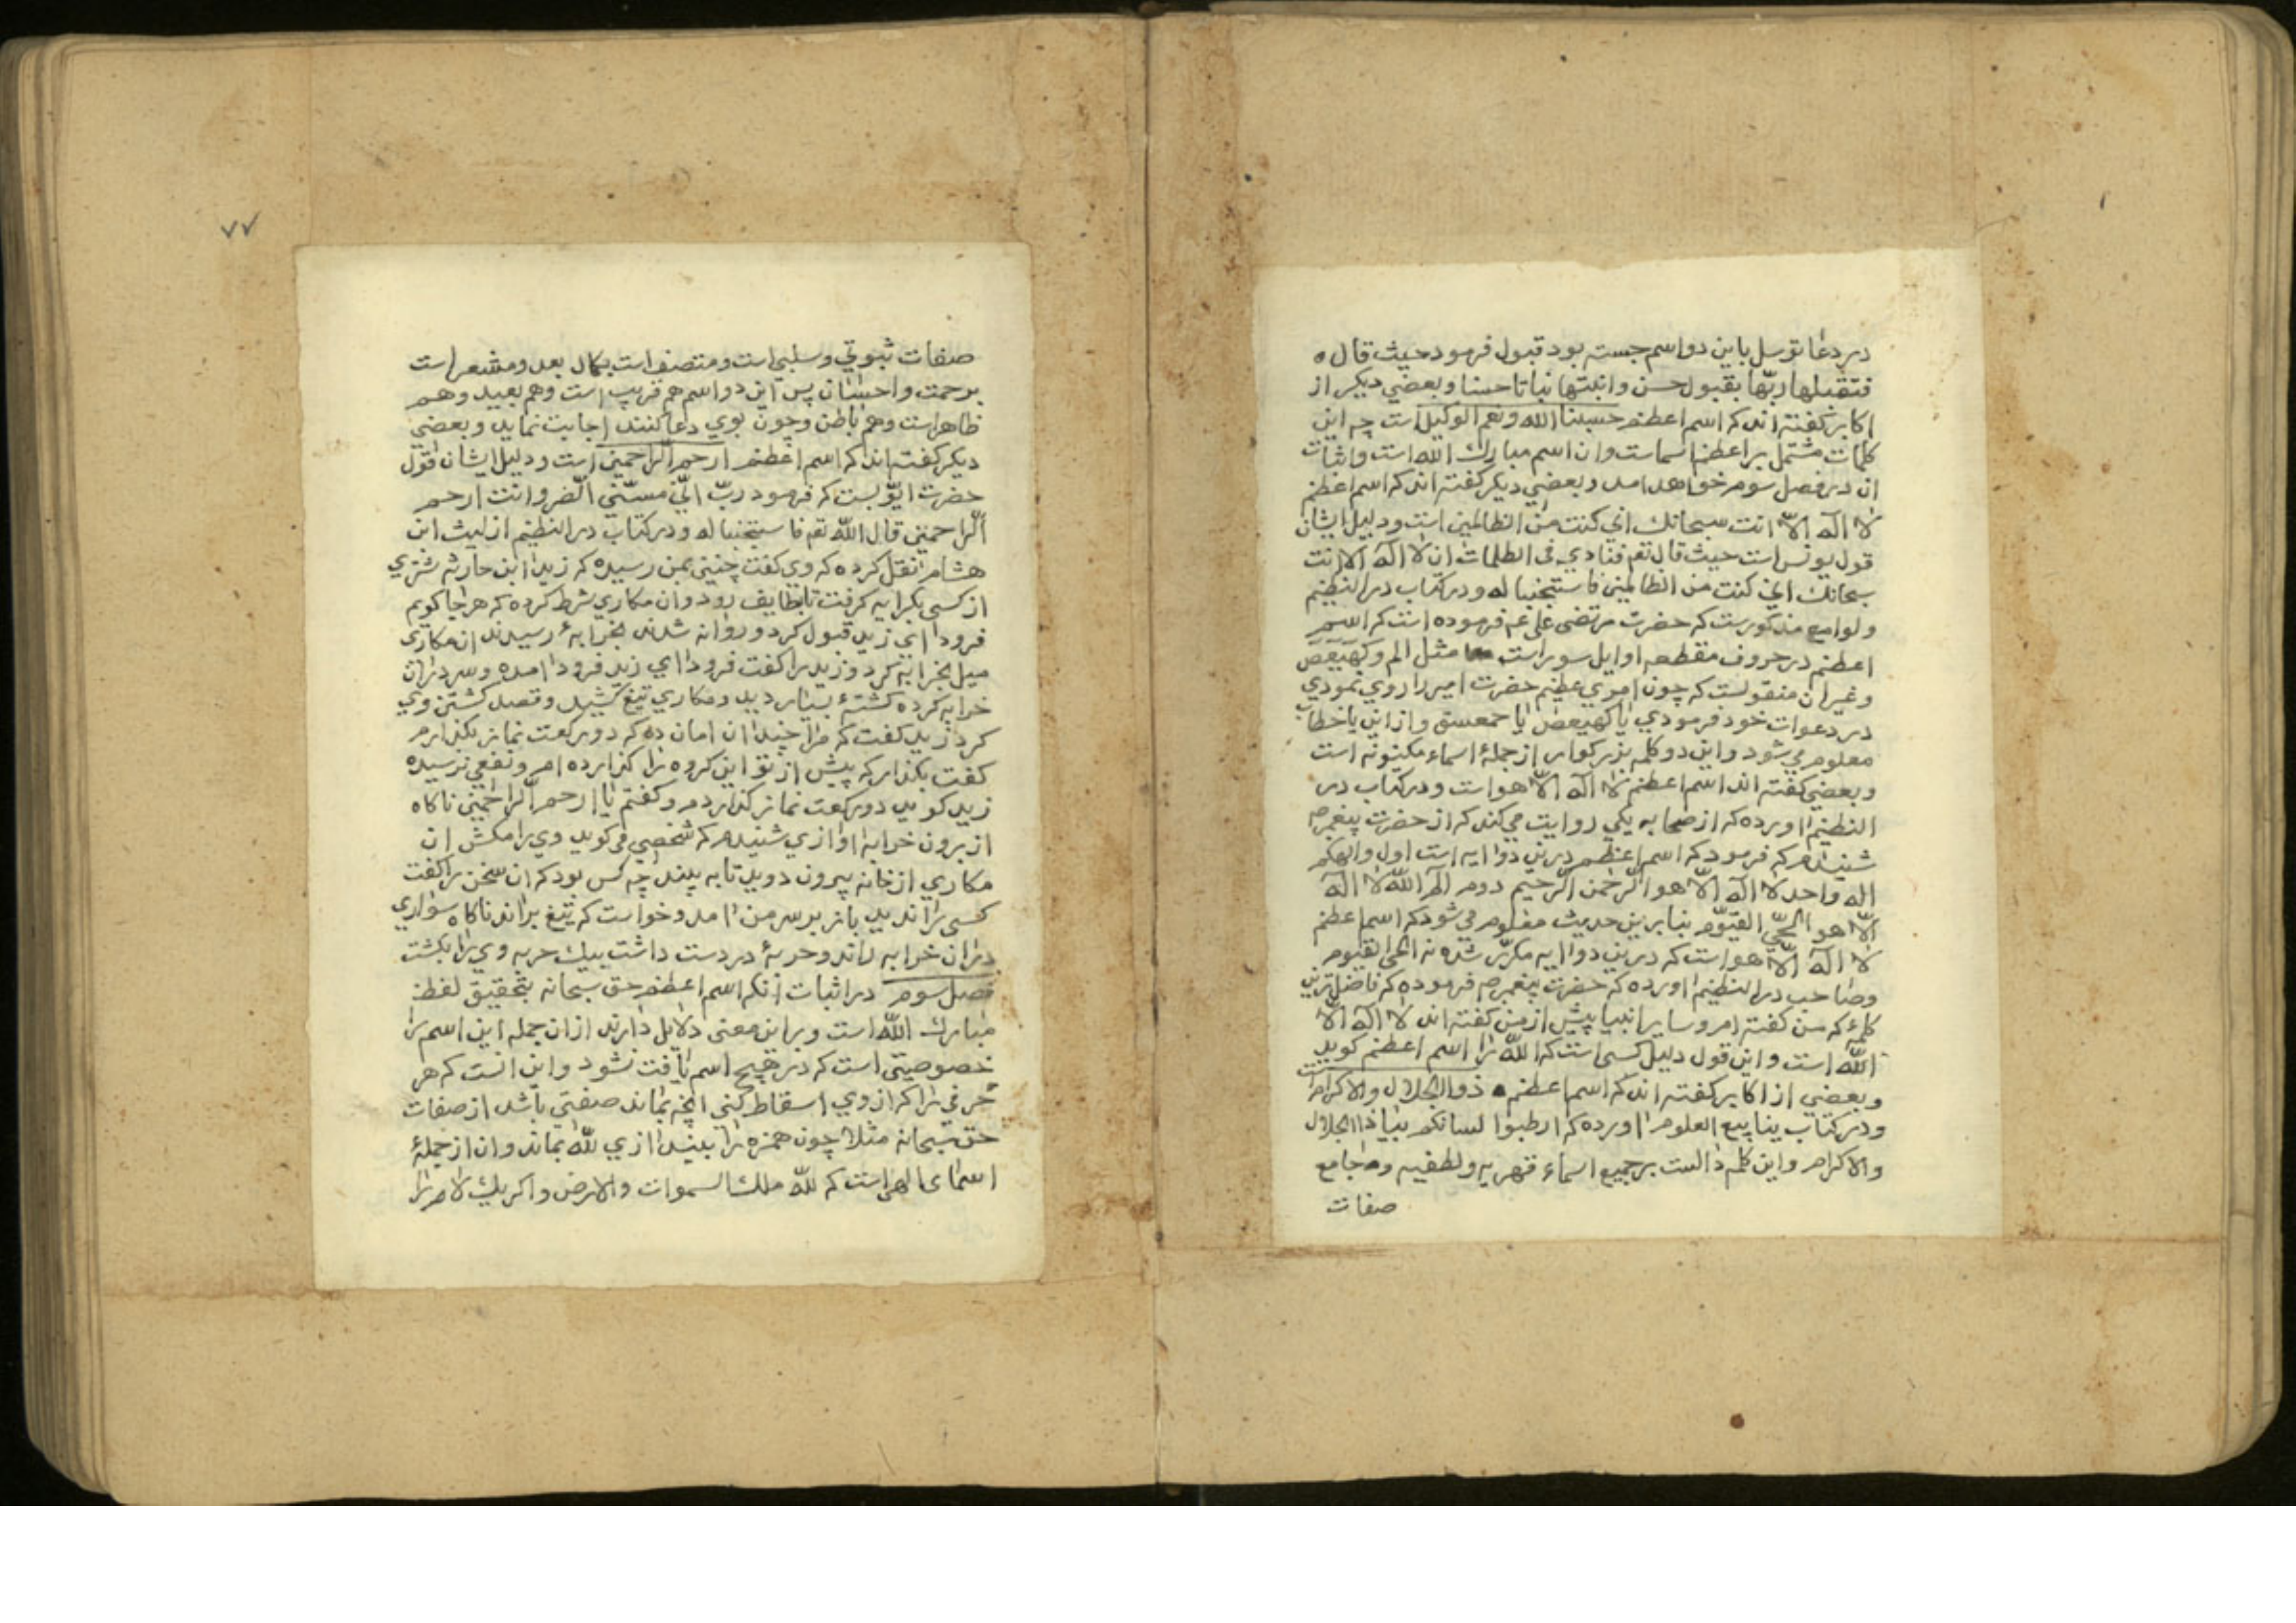 در دعا توسل باین دو اسم جسته بود قبول فرمود حیث قال ه
فتقبلها ربّها بقبول حسن وانبتها نباتا حسنا و بعضي دیکر از
اکابر کفته اند که اسم اعظم حسبنا الله ونعم الوکیل است چه این
کلمات مشتمل بر اعظم اسماست وان اسم مبارك الله است واثبات
ان در فصل سوم خواهد امد و بعضي دیکر کفته اند که اسم اعظم
لا اله الّا انت سبحانك اني کنت من الظالمین است ودلیل ایشان
قول یونس است حیث قال تعم فنادي في الظلمات ان لا اله الا انت
سبحانك اني کنت من الظالمین فاستجبنا له و در کتاب در النظیم
و لوامع مذکورست که حضرت مرتضی علی عم فرموده است که اسم
اعظم در حروف مقطعه اوایل سور است مثل الم و کهیعص
وغیر ان منقولست که چون اموري عظیم حضرت امیر را روي نمودي
در دعوات خود فرمودي یا کهیعص یا حمعسق و از این یا خطاب
معلوم می شود و این دو کلمه بزرکوار از جملۀ اسماء مکنونه است
و بعضي کفته اند اسم اعظم لا اله الّا هو است و در کتاب در
النظیم اورده که از صحابه یکي روایت می کند که از حضرت پیغمبر صم
شنیدم که فرمود که اسم اعظم درین دو ایه است اول والهکم
اله واحد لا اله الّا هو الرّحمن الرّحیم دوم الم اللّه لا اله
الّا هو الحيّ القیّوم بنابرین حدیث معلوم می شود که اسم اعظم
لا اله الّا هو است که درین دو ایه مکرّر شده نه الحي القیوم
وصاحب در النظیم اورده که حضرت پیغمبر صم فرموده که فاضل ترین
کلمۀ که من کفته ام و سایر انبیا پیش از من کفته اند لا اله الّا
اللّه است و این قول دلیل کسی است که اللّه را اسم اعظم کوید
و بعضي از اکابر کفته اند که اسم اعظم ذو الجلال والاکرام است
و در کتاب ینابیع العلوم اورده که ارطبوا لسانکم بیا ذا الجلال
والاکرام و این کلمه دالست بر جمیع اسماء قهریه و لطفیه و جامع
صفات
۷۷
صفات ثبوتي وسلبي است ومتصف است بکمال بعد ومشعر است
برحمت واحسان پس این دو اسم هم قریب است وهم بعید وهم
ظاهر است وهم باطن وچون بوي دعا کنند اجابت نماید و بعضی
دیکر کفته اند که اسم اعظم ارحم الراحمین است ودلیل ایشان قول
حضرت ایّوبست که فرمود ربّ انّي مسّني الضّر وانت ارحم
الرّاحمین قال اللّه تعم فاستجبنا له و در کتاب در النظیم از لیث ابن
هشام نقل کرده که وي کفت چنین بمن رسیده که زید ابن حارثه شتري
از کسی بکرایه کرفت تا بطایف رود وان مکاري شرط کرده که هر جا کویم
فرود اي زید قبول کرد و روانه شدند بخرابۀ رسیدند ان مکاري
میل بخرابه کرد و زید را کفت فرود اي زید فرود امده وسر دران
خرابه کرده کشتۀ بسیار دید ومکاري تیغ کشید وقصد کشتن وي
کرد زید کفت که مرا چندان امان ده که دو رکعت نماز بکذارم
کفت بکذار که پیش از تو این کروه را کذارده ام و نفعي نرسیده
زید کوید دو رکعت نماز کذاردم و کفتم یا ارحم الراحمین ناکاه
از برون خرابه اوازي شنیدم که شخصي می کوید وي را مکش ان
مکاري از خانه بیرون دوید تا به بیند چه کس بود که ان سخن را کفت
کسی را ندید باز بر سر من امد و خواست که تیغ براند ناکاه سواري
دران خرابه راند و حربۀ در دست داشت بیك حربه وي را بکشت
فصل سوم در اثبات انکه اسم اعظم حق سبحانه بتحقیق لفظ
مبارك اللّه است و براین معنی دلایل دارند ازان جمله این اسم را
خصوصیتي است که در هیچ اسم یافت نشود و این انست که هر
حرفي را که از وي اسقاط کني انچه بماند صفتي باشد از صفات
حق سبحانه مثلا چون همزه را بیندازي للّه بماند وان از جملۀ
اسماي الهی است که للّه ملك السموات والارض واکر یك لام را